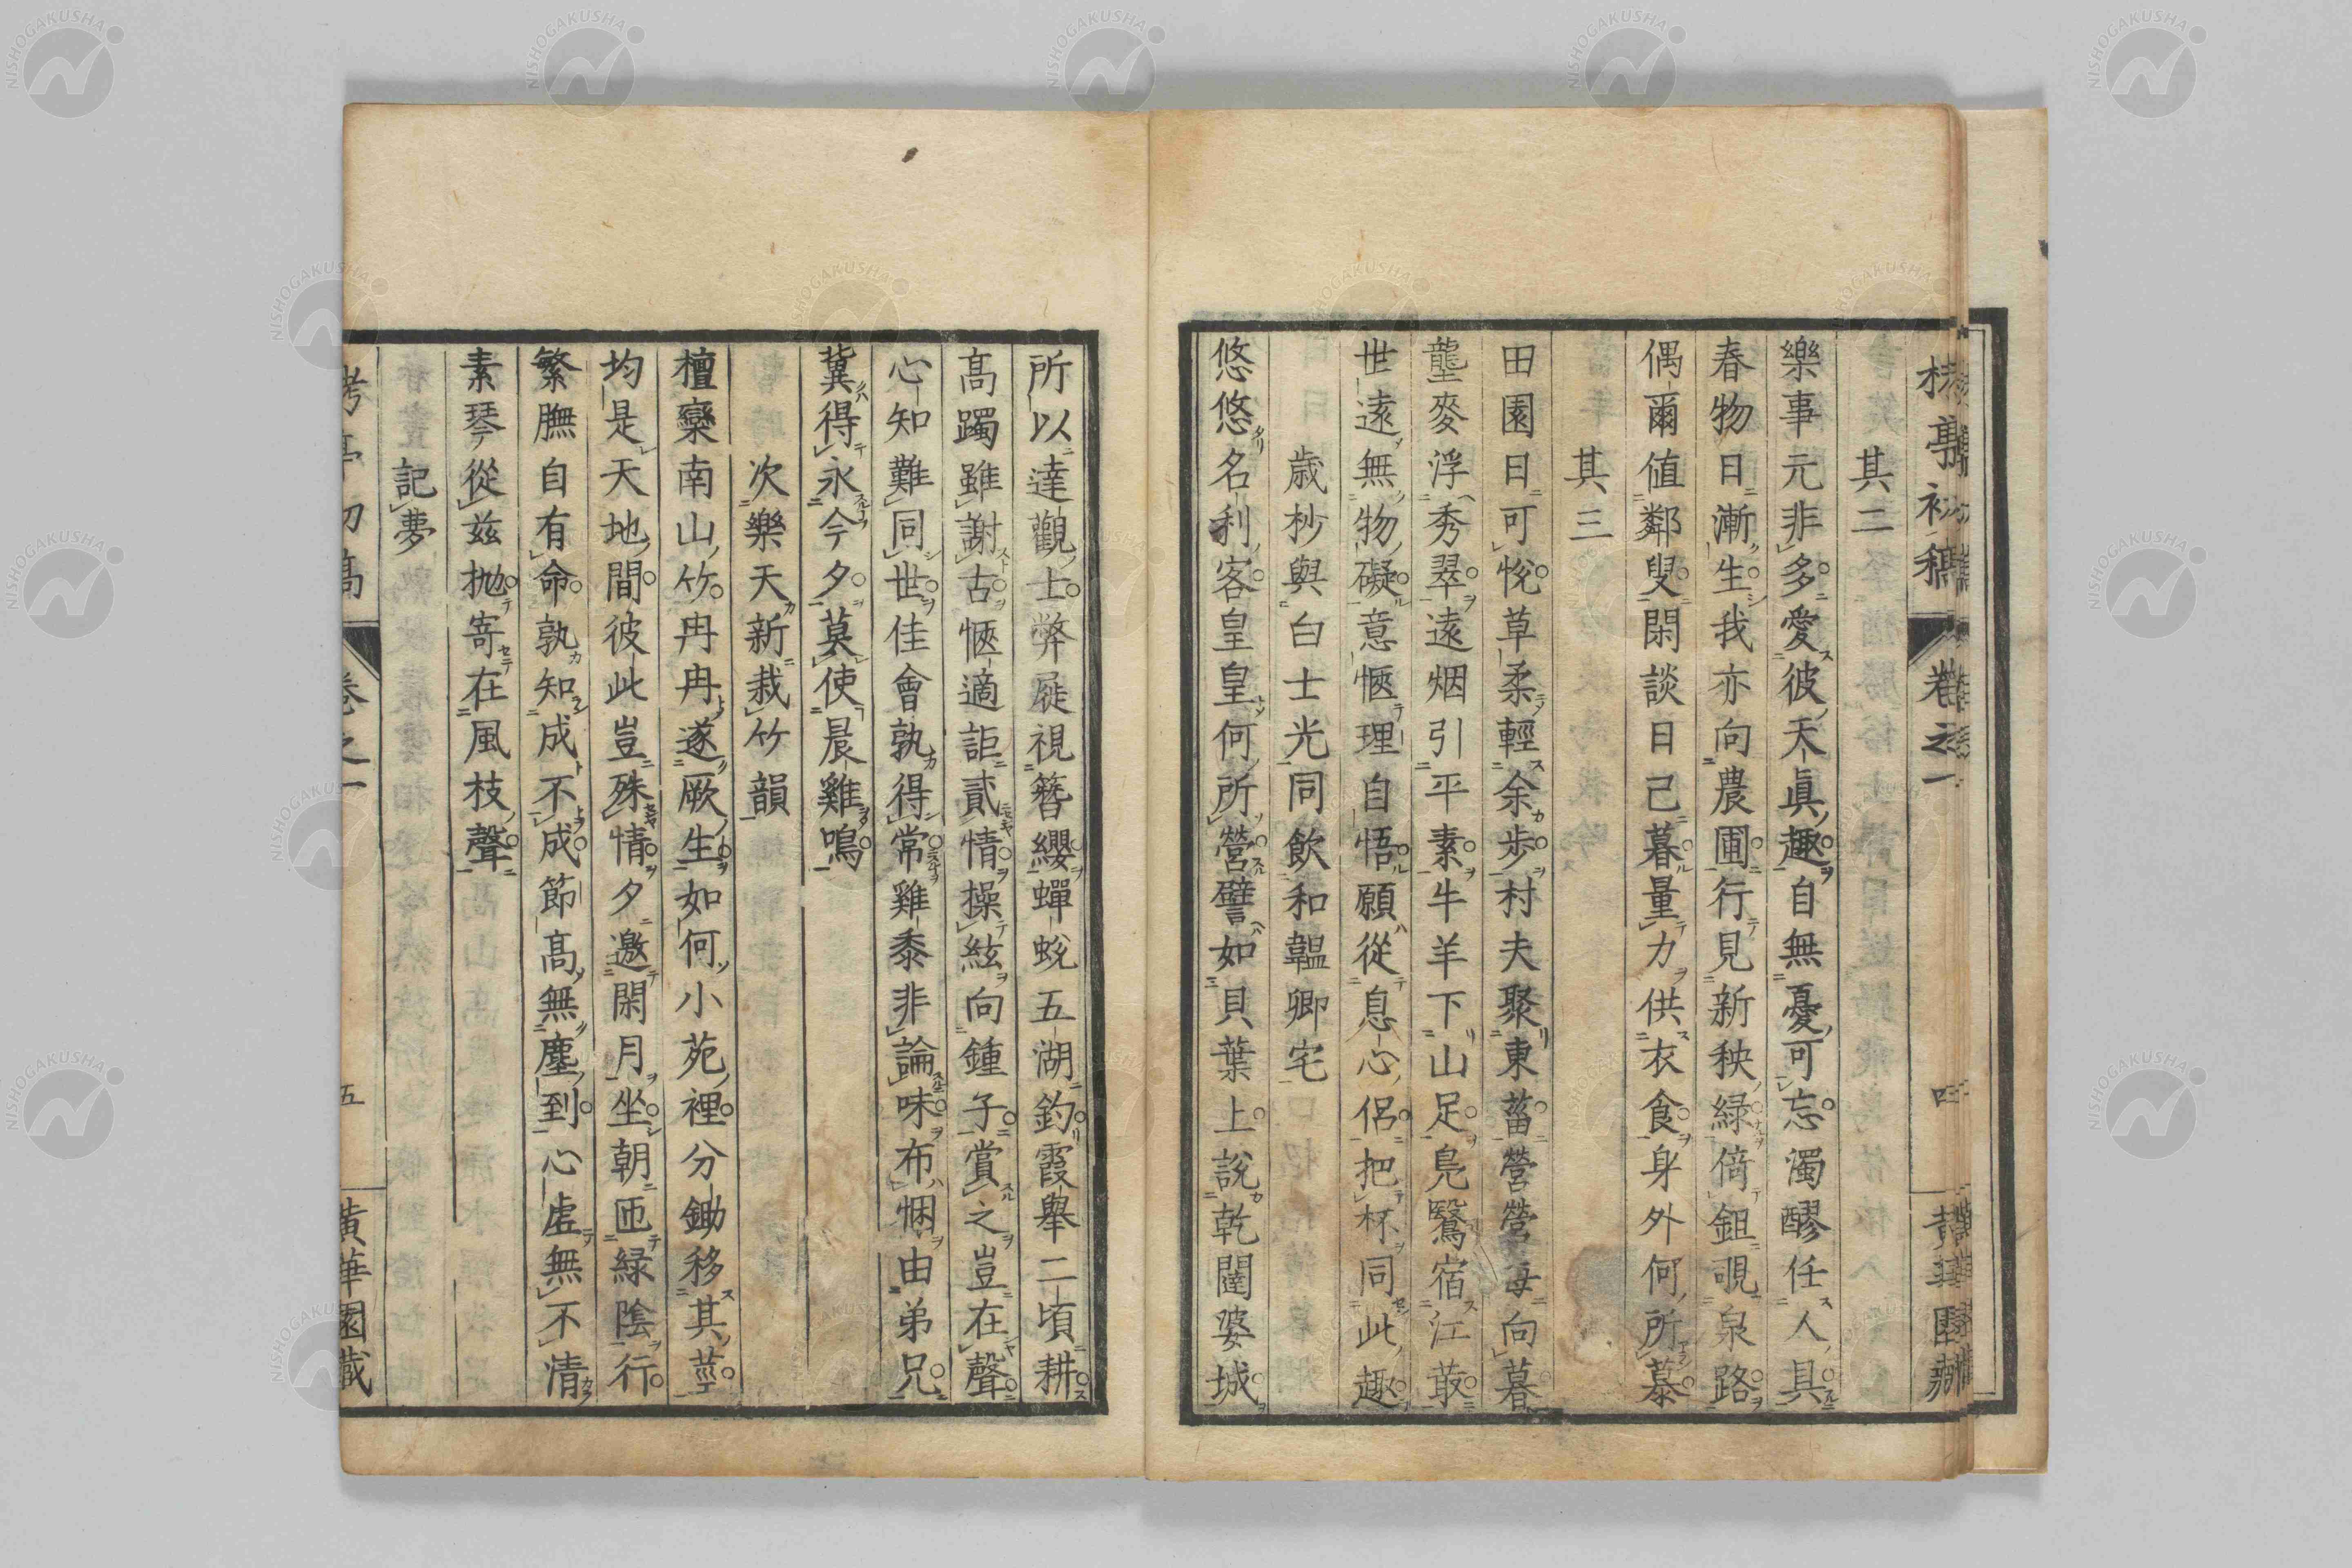 其二
樂事元非多愛彼天眞趣自無憂可忘濁醪任人具
春物日漸生我亦向農圃行見新秧緑倚鉏覗泉路
偶爾値鄰叟閑談日己暮量力供衣食身外何所慕
其三
田園日可悅草柔輕余歩村夫聚東菑營營每向暮
壟麥浮秀翠遠烟引平素牛羊下山足鳧鷖宿江菆
世遠無物礙意愜理自悟願從息心侶把杯同此趣
歳杪與白士光同飲和韞卿宅
悠悠名利客皇皇何所營譬如貝葉上說乾闥婆城
所以達觀士弊屣視簪纓蟬蛻五湖釣霞舉二頃耕
髙躅雖謝古愜適詎貳情操絃向鍾子賞之豈在聲
心知難同世佳會孰得常雞黍非論味布悃由弟兄
冀得永今夕莫使晨雞鳴
次樂天新栽竹韻
檀欒南山竹冉冉遂厥生如何小苑裡分鋤移其莖
均是天地間彼此豈殊情夕邀閑月坐朝匝緑陰行
繁膴自有命孰知成不成節髙無塵到心虚無不清
素琴從兹抛寄在風枝聲
記夢
卷之一
五
黄華園藏
NISHOGAKUSHA